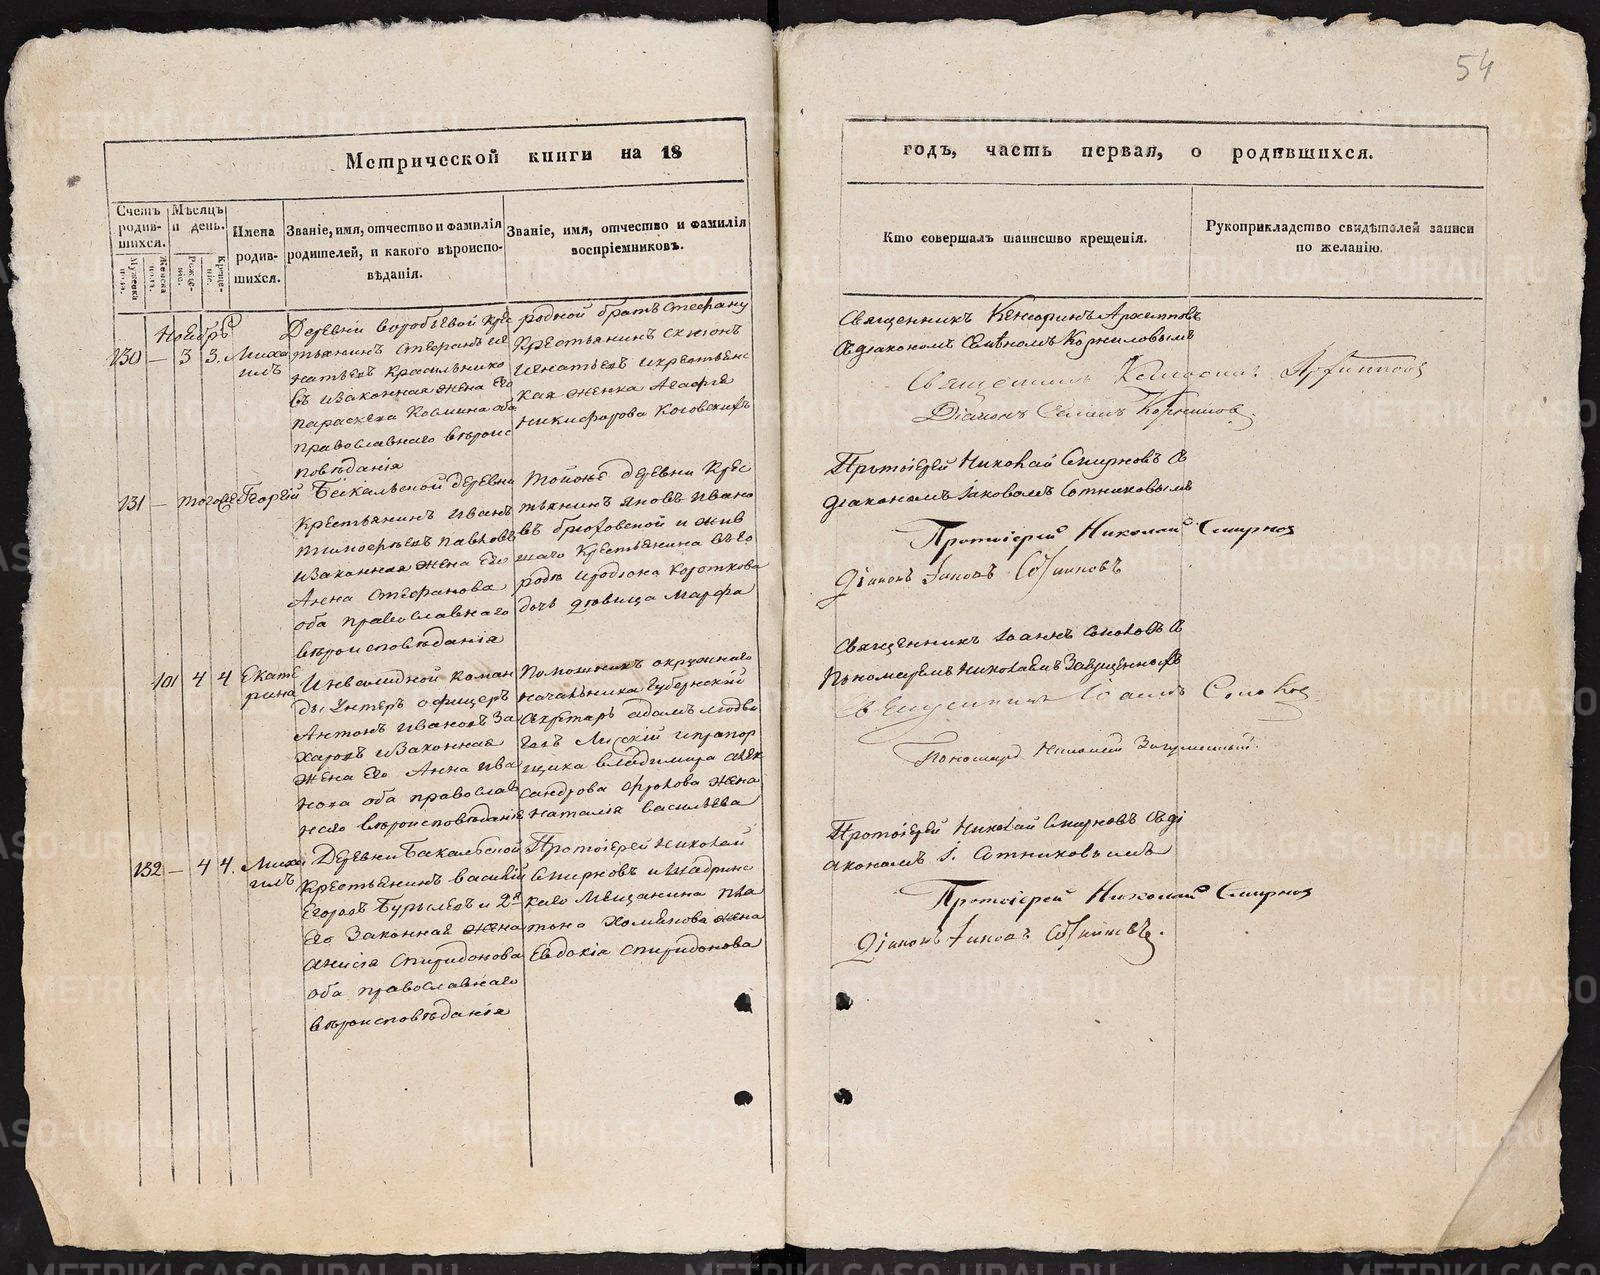 54
Метрической книги на 18
годъ, часть первая, о родившихся.
Счетъ родившихся.
Мужеска пола.
Женска пола.
Мѣсяцъ и день.
Рожденіе.
Крещеніе.
Имена родившихся.
Званіе, имя, отчество и фамилія
родителей, и какого вѣроиспо-
вѣданія.
Званіе, имя, отчество и фамилія
воспріемниковъ.
Кто совершалъ таинство крещенія.
Рукоприкладство свидѣтелей записи
по желанію.
Ноябрь
130 — 3 3. Миха
илъ
Деревни Воробьевой Крес
тьянинъ Стефанъ Иг
натьевъ Красильнико
въ и законная жена Его
Параскева Космина оба
православнаго вѣроис
повѣданія
родной братъ Стефану
Крестьянинъ
Игнатьевъ и крестьянс
кая женка Агафія
Никифорова
Священникъ Кенсоринъ Архипповъ
съ діакономъ Корниловымъ
Священникъ Кенсоринъ Архипповъ
Діаконъ Корниловъ.
131 — того же Георгій
Бакальской деревни
Крестьянинъ Иванъ
Тимофеевъ Павловъ
и законная жена Его
Анна Стефанова
оба православнаго
вѣроисповѣданія
тойже деревни Крес
тьянинъ Яковъ Ивано
въ и жив
шаго Крестьянина въ го
родѣ Иродіона Короткова
дочь дѣвица Марфа
Протоіерей Николай Смирновъ съ
діакономъ Іаковомъ Сотниковымъ
Протоіерей Николай Смирновъ
Діаконъ Іаковъ Сотниковъ
101 4 4 Екате
рина
Инвалидной коман
ды Унтеръ офицеръ
Антонъ Ивановъ За
харовъ и законная
жена Его Анна Ива
нова оба православ
наго вѣроисповѣданія
Помошникъ окружнаго
начальника Губернскій
Секретарь Адамъ Людви
говъ и прапор
щика Владимира Алек
сандрова Фролова жена
Наталія Васильева
Священникъ Іоаннъ Соколовъ съ
пономаремъ Николаемъ
Священникъ Іоаннъ Соколовъ
Пономарь Николай
132 — 4 4. Миха
илъ
Деревни Бакальской
Крестьянинъ Василій
Егоровъ Бурмлевъ и 2я
Его законная жена
Анисія Спиридонова
оба православнаго
вѣроисповѣданія
Протоіерей Николай
Смирновъ и Шадринс
каго Мѣщанина Пла
тона Хомякова жена
Евдокія Спиридонова
Протоіерей Николай Смирновъ съ ді
акономъ І. Сотниковымъ
Протоіерей Николай Смирновъ
Діаконъ Іаковъ Сотниковъ.